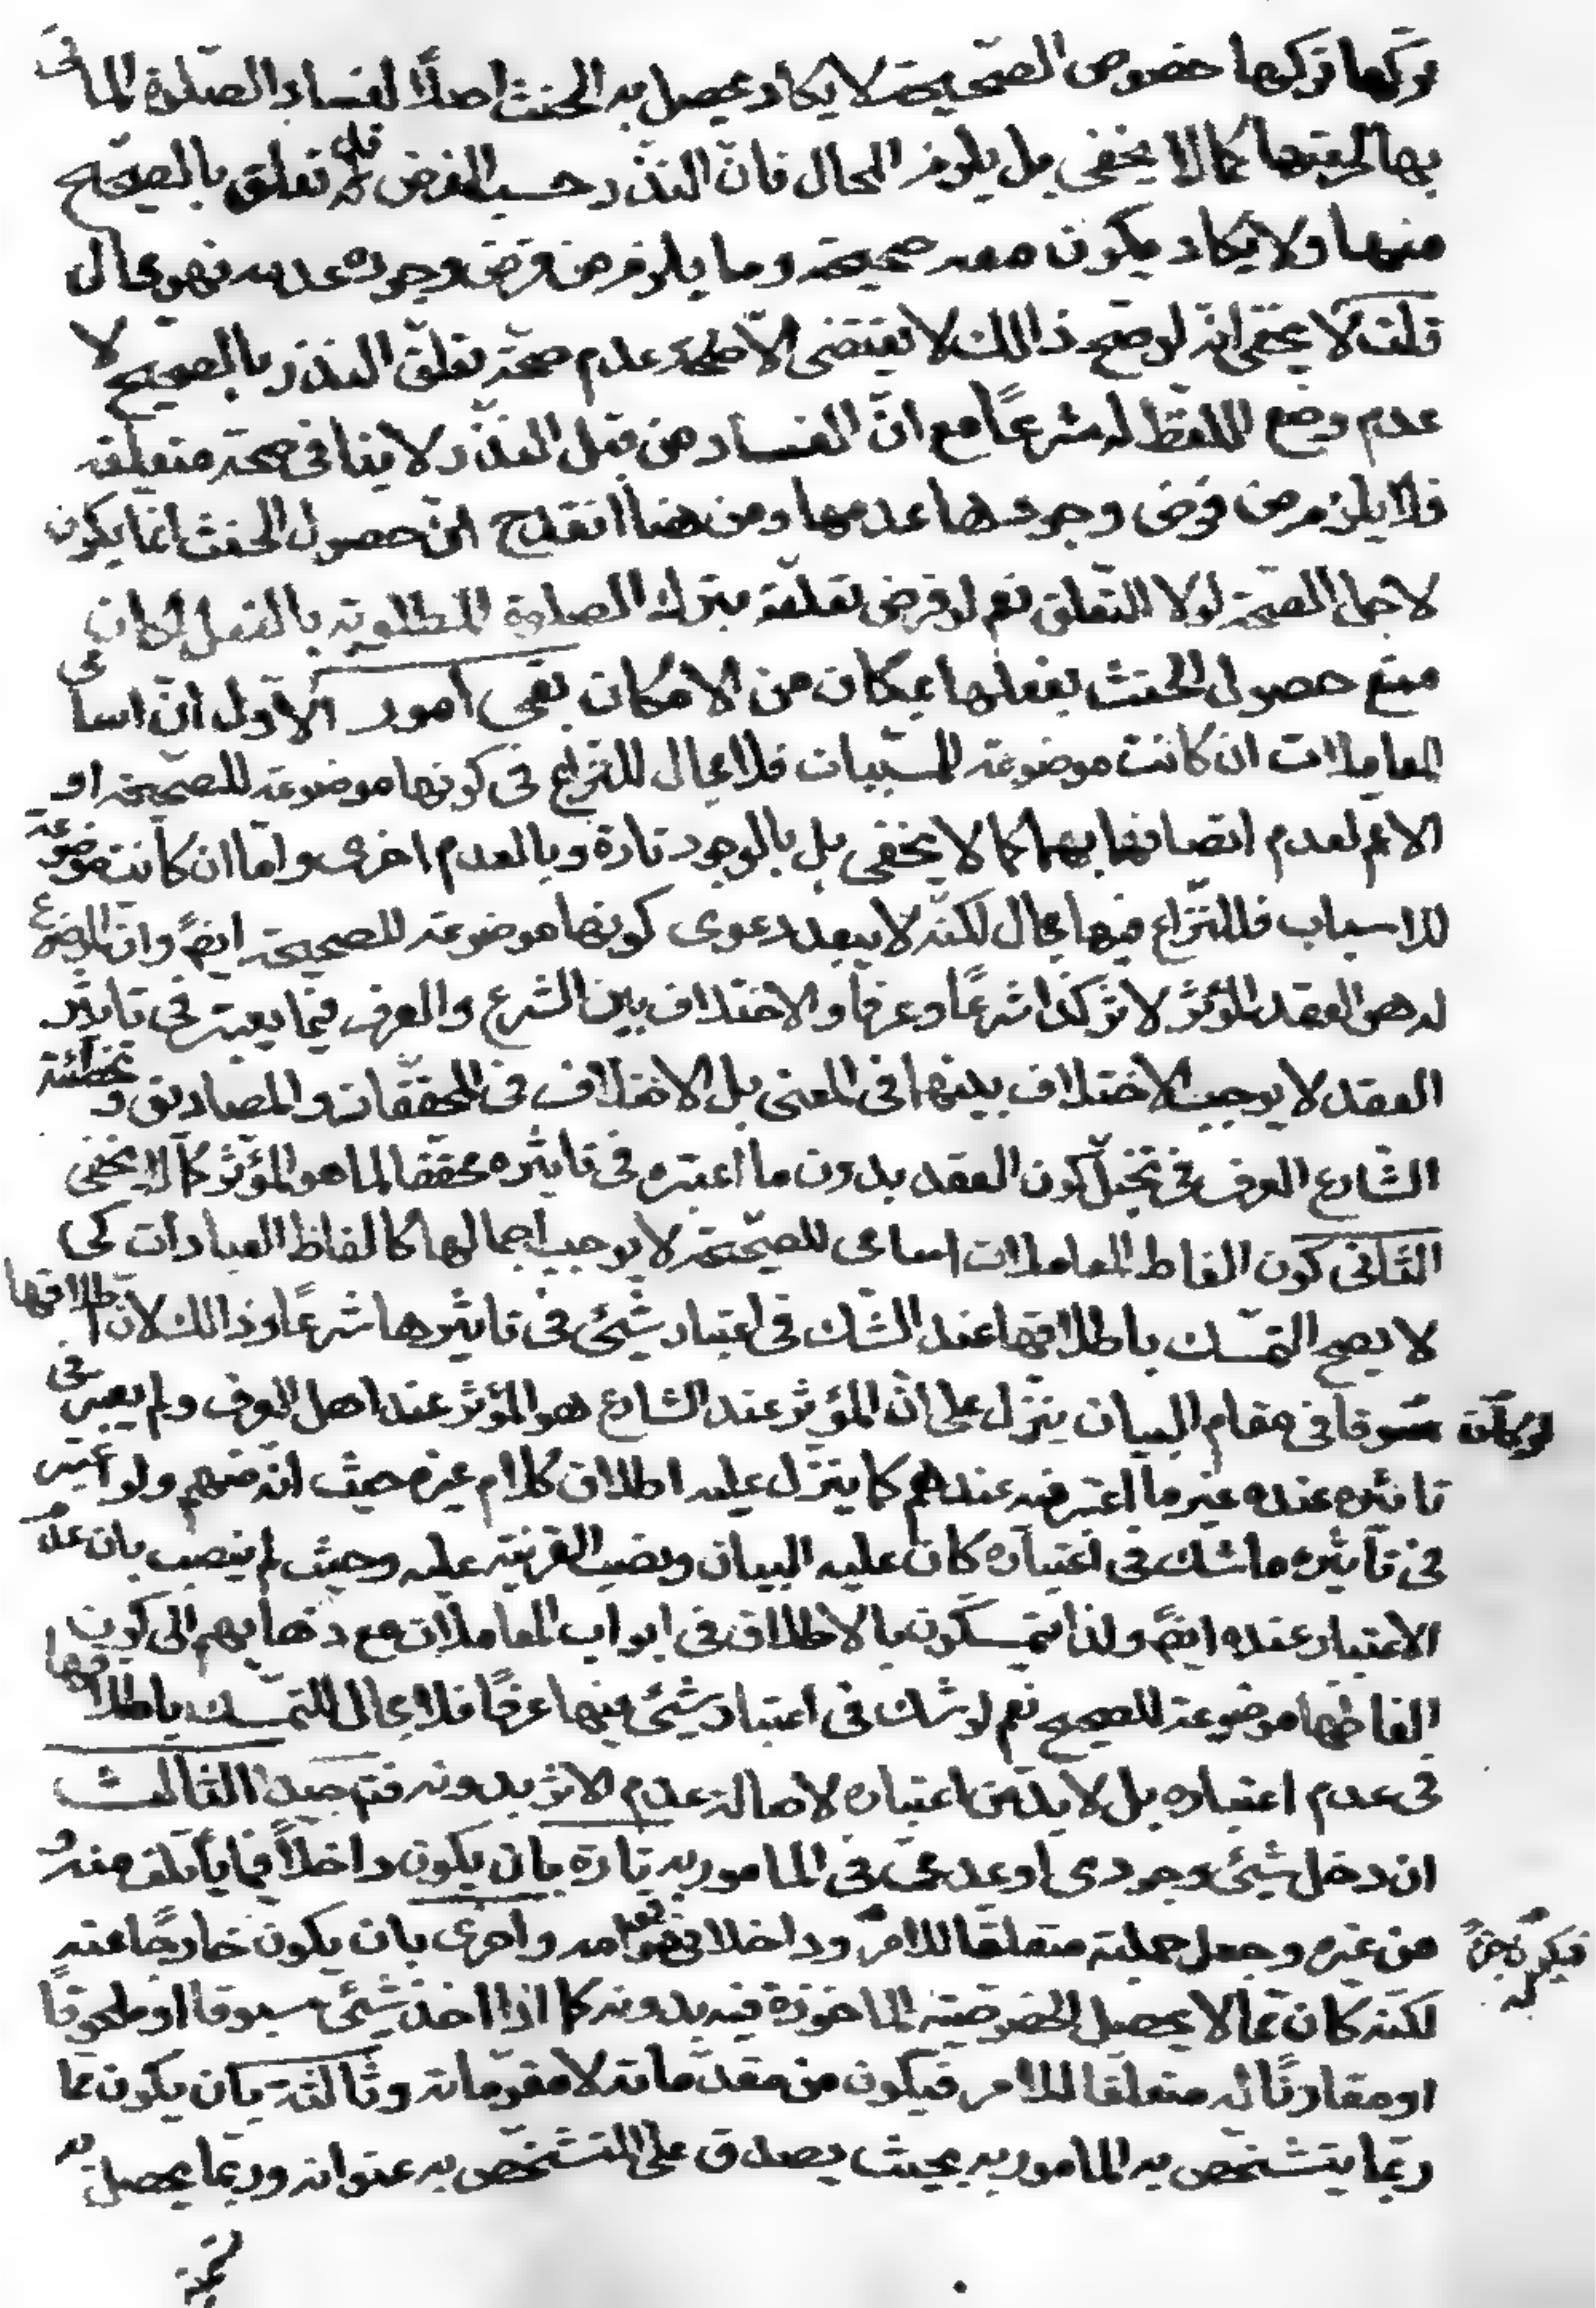 تركها تركها خصوص الصحيحة لا يكاد يحصل به الحنث اصلاً لفساد الصلوة الماتى
بها لحرمتها كما لا يخفى بل يلزم المحال فانّ النذر حسب الفرض قد تعلق بالصحيح
منها ولا يكاد يكون معه صحيحة وما يلزم من فرض وجوده عدمه فهو محال
قلت لا يخفى انه لو صح ذالك لا يقتضى الا عدم صحّة تعلّق النذر بالصحيح لا
عدم وضع اللفظ له شرعًا مع انّ الفساد من قبل النذر لا ينافى صحة متعلقه
فلا يلزم من فرض وجودها عدمها ومن هنا انقدح انّ حصول الحنث انما يكون
لاجل الصحة لولا التّعلق نعم لو فرض تعلقه بترك الصلوة المطلوبة بالفعل لكان
منع حصول الحنث بفعلها بمكان من الامكان بقى امور الاوّل انّ اسامى
المعاملات ان كانت موضوعة للمسّببات فلا مجال للنزاع فى كونها موضوعة للصحيحة او
الاعم لعدم اتصافها بهما كما لا يخفى بل بالوجود تارة وبالعدم اخرى وامّا ان كانت موضوعة
للاسباب فللنّزاع فيها مجال لكنّه لا يبعد دعوى كونها موضوعة للصحيحة ايضً وانّ الموضوع
له هو العقد المؤثر لاثر كذا شرعًا وعرفا والاختلاف بين الشرع والعرف فيما يعتبر فى تاثير
العقد لا يوجب الاختلاف بينهما فى المعنى بل الاختلاف فى المحققات والمصاديق و تخطئة
الشارع العرف فى تخيّل كون العقد بدون ما اعتبره فى تاثيره محققا لما هو المؤثر كما لا يخفى
الثانى كون الفاظ المعاملات اسامى للصحيحة لا يوجب اجمالها كالفاظ العبادات كى
لا يصح التمسّك باطلاقها عند الشك فى اعتبار شيئى فى تاثيرها شرعًا وذالك لان اطلاقها
لو كان مسوقا فى مقام البيان ينزّل على انّ المؤثر عند الشارع هو المؤثر عند اهل العرف ولم يعتبر فى
تاثيره عنده غير ما اعتبر فيه عندهم كما ينزّل عليه اطلاق كلام غيره حيث انه منهم ولو اعتبر
فى تاثيره ما شك فى اعتباره كان عليه البيان ونصب القرينة عليه وحيث لم ينصب بان عدم
الاعتبار عنده ايضً ولذا يتمسكون بالاطلاق فى ابواب المعاملات مع ذهابهم الى كون
الفاظها موضوعة للصحيح نعم لو شك فى اعتبار شيئى فيها عرفًا فلا مجال للتمسك باطلاقها
فى عدم اعتباره بل لا بدّ من اعتباره لاصالة عدم الاثر بدونه فتم جيدا الثالث
ان دخل شيئى وجودى او عدمى فى المامور به تارة بان يكون داخلاً فيما ياتلف منه و
من غيره وجعل جملته متعلقا للامر فيكون جزءً له وداخلا فى قوامه واخرى بان يكون خارجًا عنه
لكنه كان ممّا لا يحصل الخصوصيّة الماخوذة فيه بدونه كما اذا اخذ شيئى مسبوقا او ملحوقًا
او مقارنًا له متعلقا للامر فيكون من مقدّماته لا مقوّماته وثالثة بان يكون ممّا
ربّما يتشخّص به المامور به بحيث يصدق على المتشخّص به عنوانه وربّما يحصل به